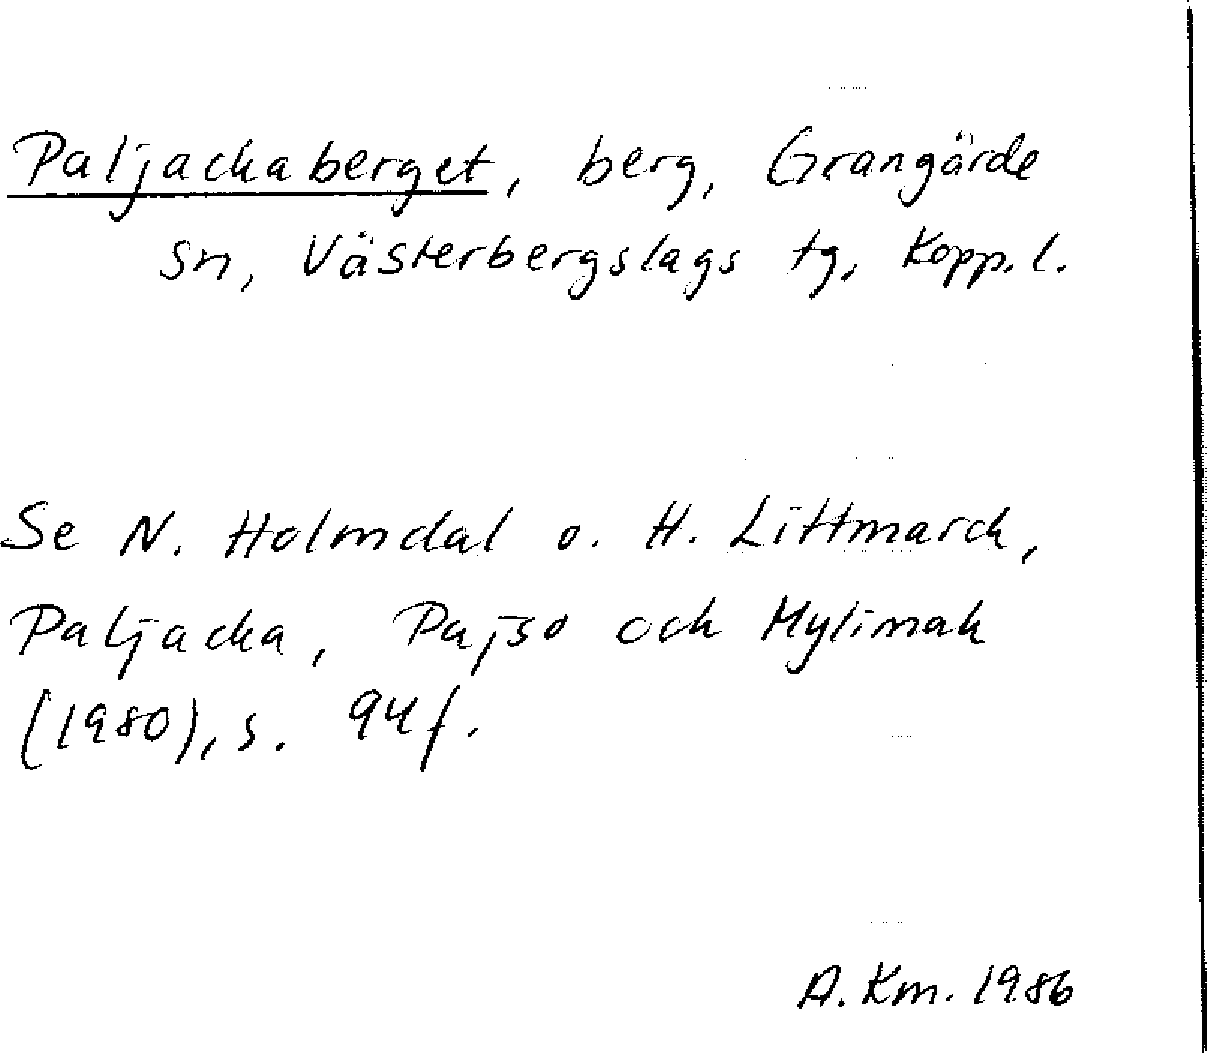 Paljackaberget, berg, Grangärde
sn, Västerbergslags tg, Kopp. l.
Se N. Holmdal o. H. Littmarck,
Paljacka, Pajso och Mylimak
(1980), s. 94 f.
A. Km. 1986